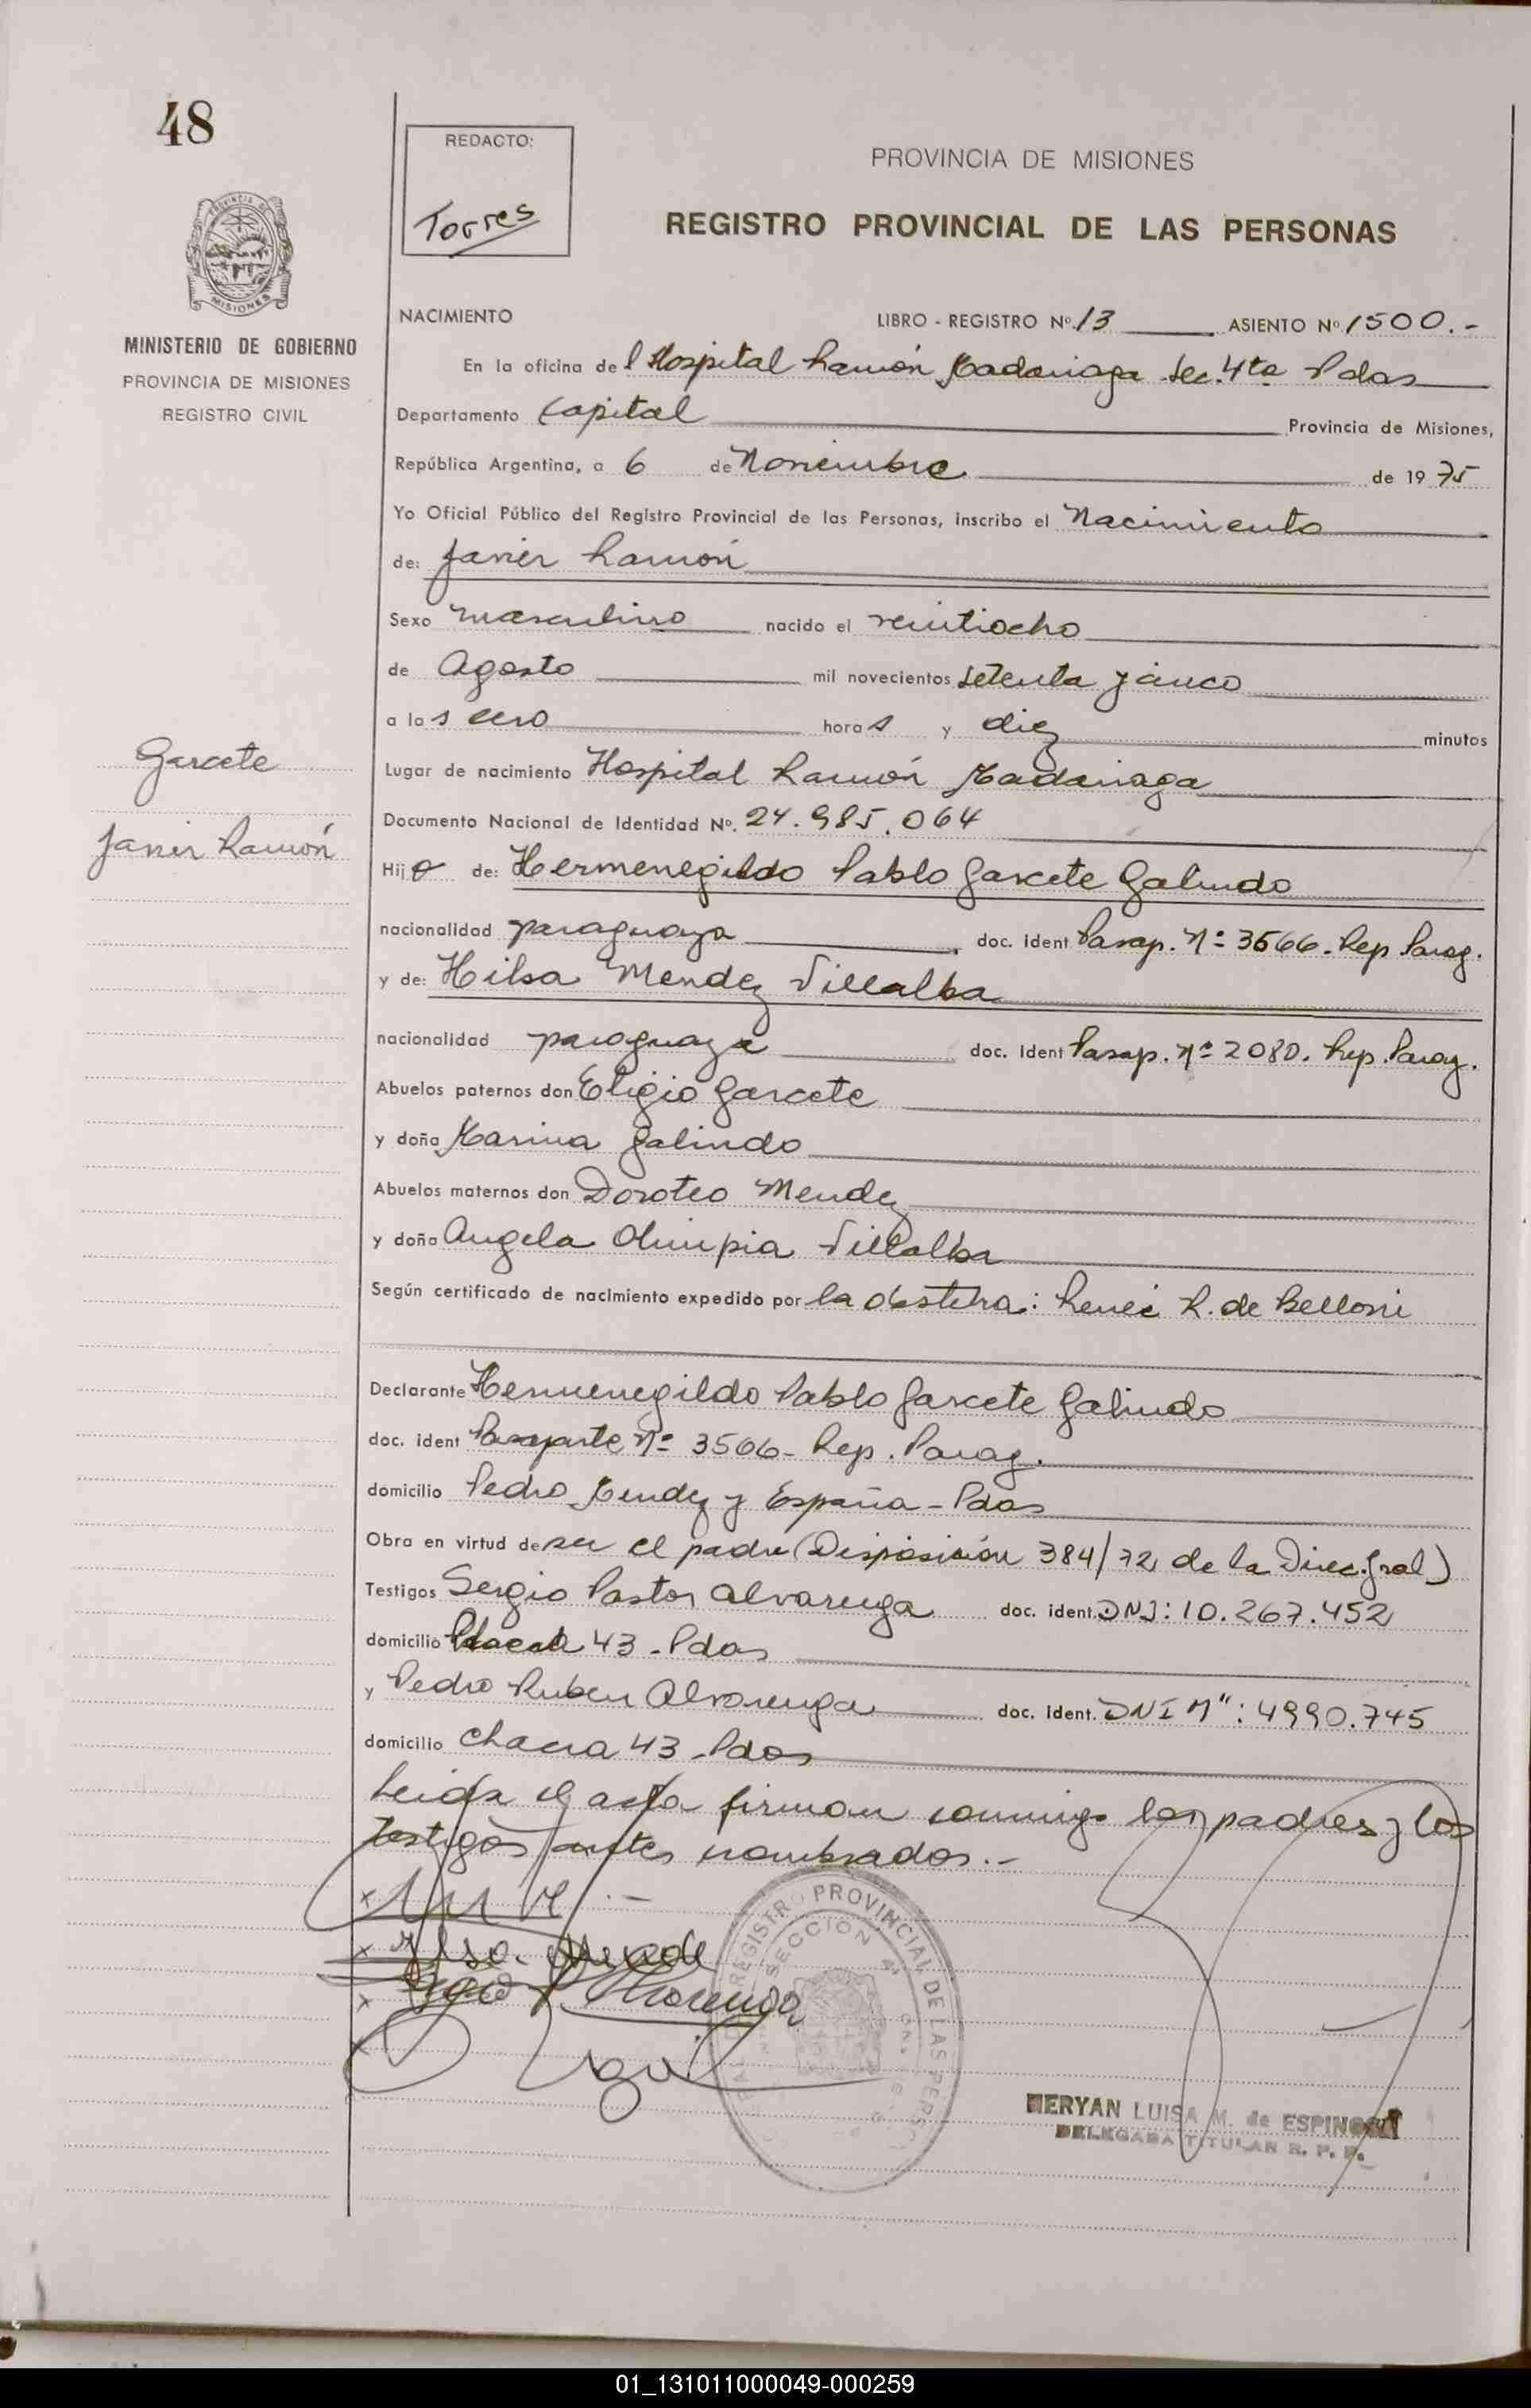 48
REDACTO:
Torres
PROVINCIA DE MISIONES
REGISTRO PROVINCIAL DE LAS PERSONAS
PROVINCIA DE
MISIONES
MINISTERIO DE GOBIERNO
PROVINCIA DE MISIONES
REGISTRO CIVIL
NACIMIENTO LIBRO - REGISTRO Nº 13 ASIENTO Nº 1500.-
En la oficina del Hospital Ramón Madariaga Sec. 4ta Pdas
Departamento Capital Provincia de Misiones,
República Argentina, a 6 de Noviembre de 1975
Yo Oficial Público del Registro Provincial de las Personas, inscribo el Nacimiento
de: Javier Ramón
Sexo masculino nacido el veintiocho
de Agosto mil novecientos setenta y cinco
a las cero horas y diez minutos
Garcete
Javier Ramón
Lugar de nacimiento Hospital Ramón Madariaga
Documento Nacional de Identidad Nº. 24.985.064
Hijo de: Hermenegildo Pablo Garcete Galindo
nacionalidad paraguaya doc. ident Pasap. Nº 3566. Rep Parag.
y de: Hilsa Mendez Villalba
nacionalidad paraguaya doc. ident Pasap. Nº 2080. Rep. Parag.
Abuelos paternos don Eligio Garcete
y doña Marina Galindo
Abuelos maternos don Doroteo Mendez
y doña Angela Olimpia Villalba
Según certificado de nacimiento expedido por la obstetra: Renée R. de Belloni
Declarante Hermenegildo Pablo Garcete Galindo
doc. ident Pasaporte Nº 3566- Rep. Parag.
domicilio Pedro Mendez y España - Pdas
Obra en virtud de ser el padre (Disposición 384/72 de la Direc. Gral)
Testigos Sergio Pastor Alvarenga doc. ident. DNI: 10.267.452
domicilio 43 - Pdas
y Pedro Ruben Alvarenga doc. ident. DNI M": 4990.745
domicilio Chacra 43 - Pdas
Leída el acta firman conmigo los padres y los
testigos antes nombrados.-
REGISTRO PROVINCIAL DE LAS PERS
SECCIÓN 4ª
MERYAN LUISA M. de ESPINOSA
DELEGADA TITULAR R. P. P.
01_131011000049-000259